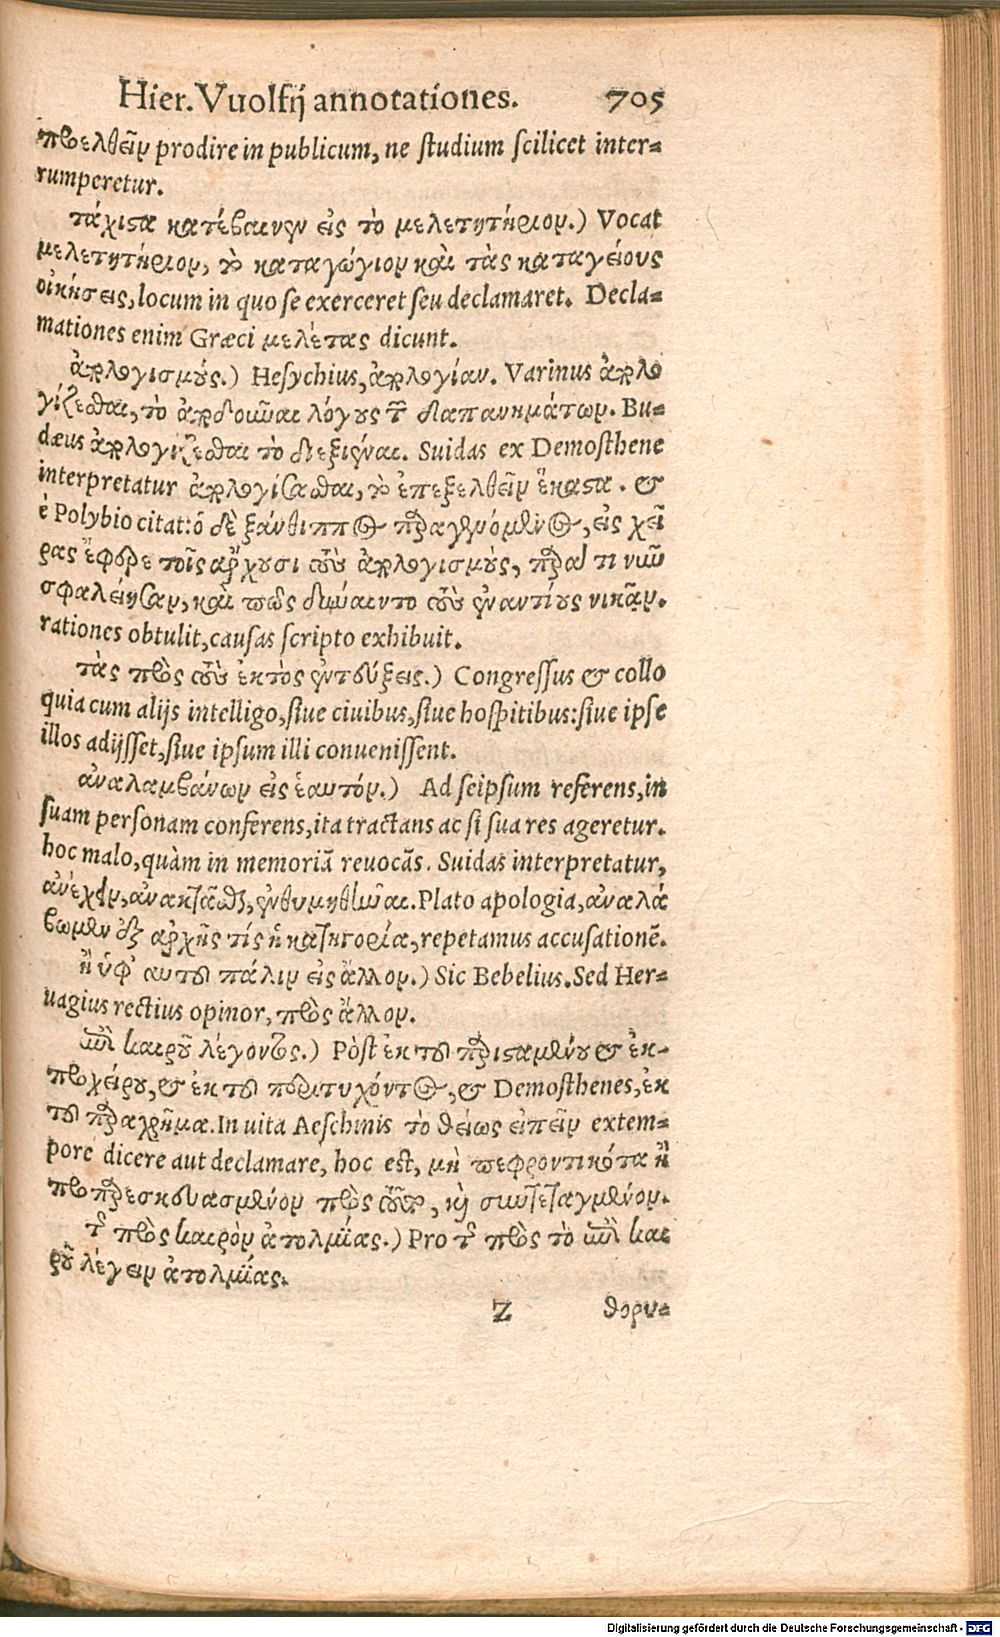 Hier. Vuolfij annotationes. 705
προελθεῖν prodire in publicum, ne studium scilicet inter-
rumperetur.
τάχιστα κατέβαινεν εἰς τὸ μελετητήριον.) Vocat
μελετητήριον, τὸ καταγώγιον καὶ τὰς καταγείους
οἰκήσεις, locum in quo se exerceret seu declamaret. Decla-
mationes enim Græci μελέτας dicunt.
ἀπολογισμούς.) Hesychius, ἀπολογίαν. Varinus ἀπολο
γίζεσθαι, τὸ ἀποδοῦναι λόγους τῶν δαπανημάτων. Bu-
dæus ἀπολογίζεσθαι τὸ διεξιέναι. Suidas ex Demosthene
interpretatur ἀπολογίσασθαι, τὸ ἐπεξελθεῖν ἕκαστα. &
è Polybio citat: ὁ δὲ ξάνθιππος παραγενόμενος, εἰς χεῖ
ρας ἔφερε τοῖς ἄρχουσι τοὺς ἀπολογισμοὺς, παρὰ τί νῦν
σφαλείησαν, καὶ πῶς δύναιντο τοὺς ἐναντίους νικᾶν.
rationes obtulit, causas scripto exhibuit.
τὰς πρὸς τοὺς ἐκτὸς ἐντεύξεις.) Congressus & collo
quia cum alijs intelligo, siue ciuibus, siue hospitibus: siue ipse
illos adijsset, siue ipsum illi conuenissent.
ἀναλαμβάνων εἰς ἑαυτόν.) Ad seipsum referens, in
suam personam conferens, ita tractans ac si sua res ageretur.
hoc malo, quàm in memoriã reuocãs. Suidas interpretatur,
ἀνέχειν, ἀνακτᾶσθαι, ἐνθυμηθῆναι. Plato apologia, ἀναλά
βωμεν ἐξ ἀρχῆς τίς ἡ κατηγορία, repetamus accusationẽ.
ἢ ὑφ᾽ αὑτοῦ πάλιν εἰς ἄλλον.) Sic Bebelius. Sed Her-
uagius rectius opinor, πρὸς ἄλλον.
ἐπὶ καιροῦ λέγοντος.) Pòst ἐκ τοῦ παρισταμένου & ἐκ-
προχείρου, & ἐκ τοῦ παρατυχόντος, & Demosthenes, ἐκ
τοῦ παραχρῆμα. In vita Aeschinis τὸ θείως εἰπεῖν extem-
pore dicere aut declamare, hoc est, μὴ πεφροντικότα ἢ
προπαρεσκευασμένον πρὸς τοῦτο, καὶ συντεταγμένον.
τῆς πρὸς καιρὸν ἀτολμίας.) Pro τῆς πρὸς τὸ ἐπὶ και
ροῦ λέγειν ἀτολμίας.
Z θορυ-
Digitalisierung gefördert durch die Deutsche Forschungsgemeinschaft - DFG